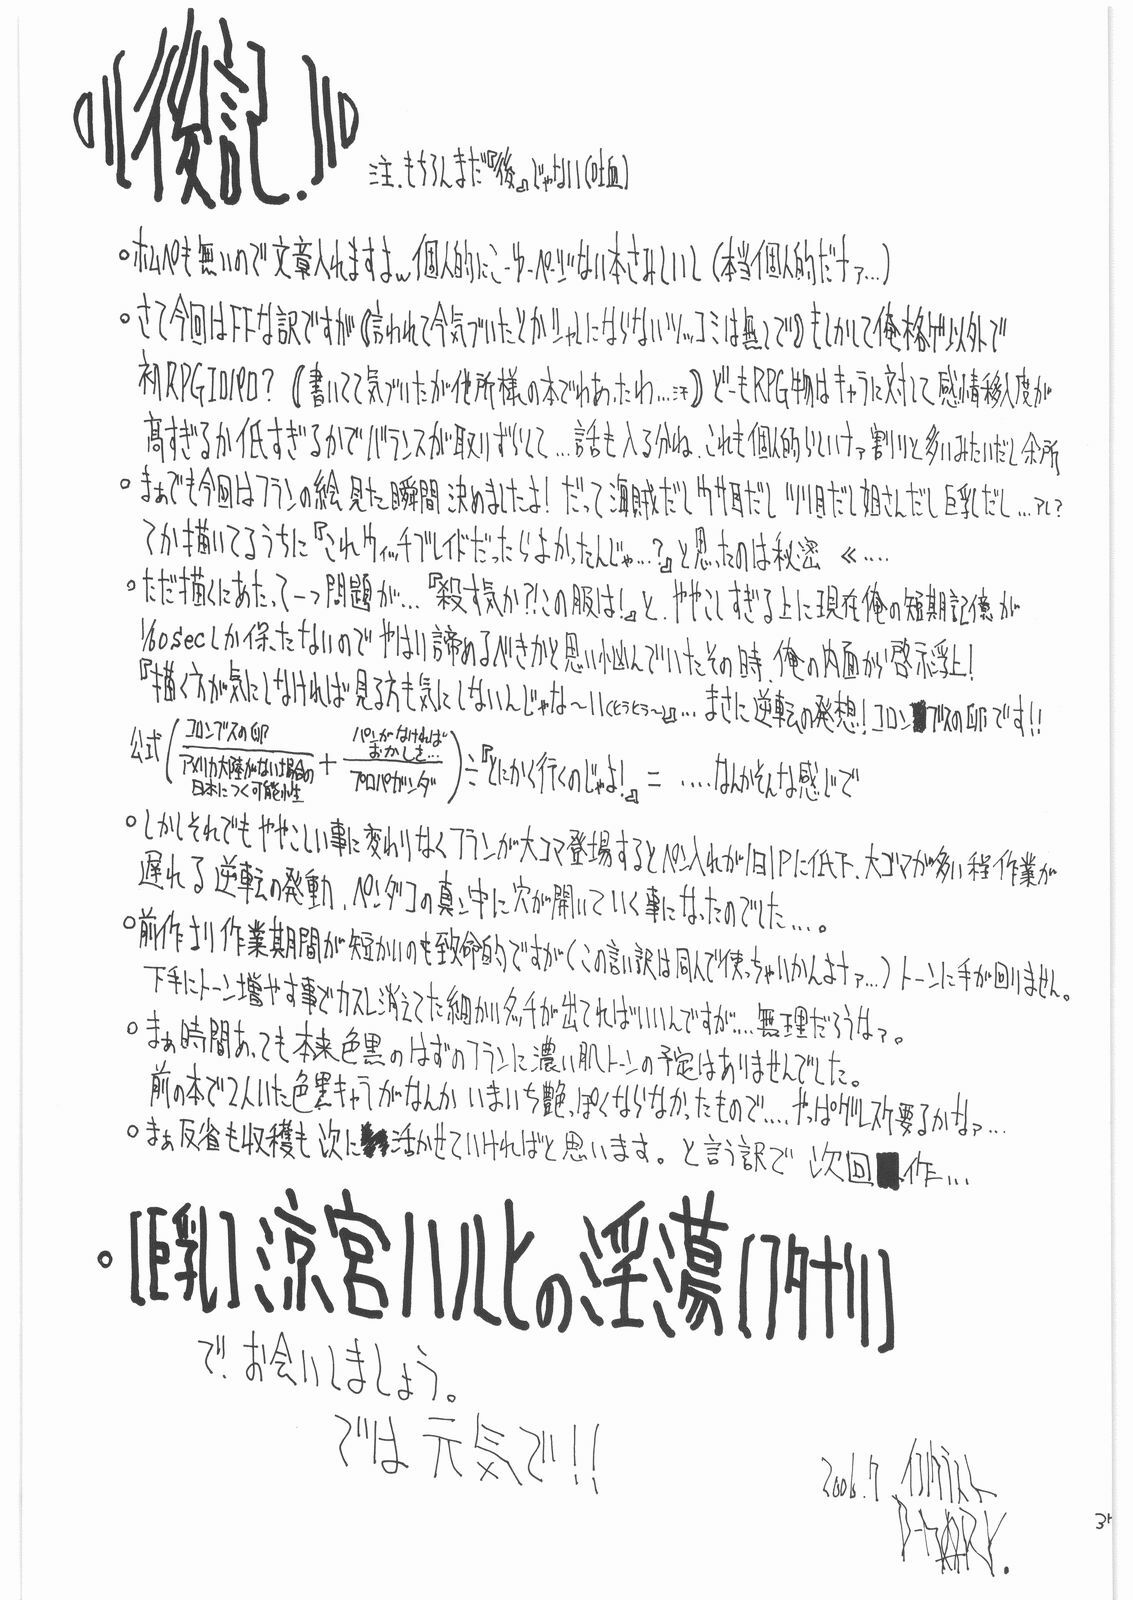 後記.
注.もちろんまだ『後』じゃない(吐血)
ホムペも無いので文章入れますよ、個人的にこーゆーページない本さみしいし(本当個人的だナァ…)
さて今回はFFな訳ですが(言われて今気づいたとかシャレにならないツッコミは無しで)もしかして俺格ゲ以外で
初RPGエロパロ?(書いてて気づいたが他所様の本でわあったわ…汗)どーもRPG物はキャラに対して感情移入度が
高すぎるか低すぎるかでバランスが取りずらくて…話も入る分ね、これも個人的らしいナァ割りと多いみたいだし余所
まぁでも今回はフランの絵見た瞬間決めましたよ!だって海賊だしウサ耳だしツリ目だし姐さんだし巨乳だし…アレ?
てか描いてるうちに『これウィッチブレイドだったらよかったんじゃ…?』と思ったのは秘密 《….
ただ描くにあたって一つ問題が…『殺す気か?!この服は!』と、ややこしすぎる上に現在俺の短期記憶が
1/60secしか保たないのでやはり諦めるべきかと思い悩んでいたその時、俺の内面から啓示浮上!
『描く方が気にしなければ見る方も気にしないんじゃな〜い(ヒラヒラ〜)』…まさに逆転の発想!コロンブスの卵です!!
公式(コロンブスの卵/アメリカ大陸がない場合の日本につく可能性+パンがなければおかしを…/プロパガンダ)÷『とにかく行くのじゃよ!』=….なんかそんな感じで
しかしそれでもややこしい事に変わりなくフランが大コマ登場するとペン入れが1日1Pに低下、大ゴマが多い程作業が
遅れる逆転の発動、ペンダコの真ン中に穴が開いていく事になったのでした….。
前作より作業期間が短かいのも致命的ですが(この言い訳は同人で使っちゃいかんよナァ…)トーンに手が回りません。
下手にトーン増やす事でカスレ消えてた細かいタッチが出てればいいんですが….無理だろうなァ。
まぁ時間あっても本来色黒のはずのフランに濃い肌トーンの予定はありませんでした。
前の本で2人いた色黒キャラがなんかいまいち艶っぽくならなかったもので….やっぱグレスケ要るかなァ…
まぁ反省も収穫も次に活かせていければと思います。と言う訳で 次回作…
[巨乳]涼宮ハルヒの淫蕩[フタナリ]
で.お会いしましょう。
では元気で!!
2006.7